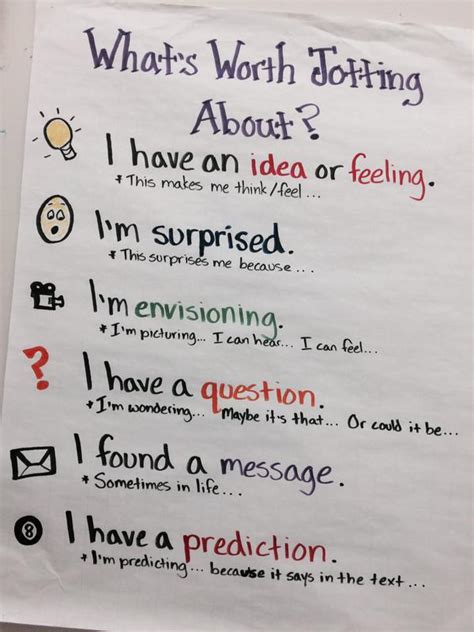 What's Worth Jotting
About?
I have an idea or feeling.
* This makes me think/feel...
I'm surprised.
* This surprises me because...
I'm envisioning.
* I'm picturing... I can hear... I can feel...
?
I have a question.
* I'm wondering... Maybe it's that... Or could it be...
I found a message.
* Sometimes in life...
8
I have a prediction.
* I'm predicting... because it says in the text...